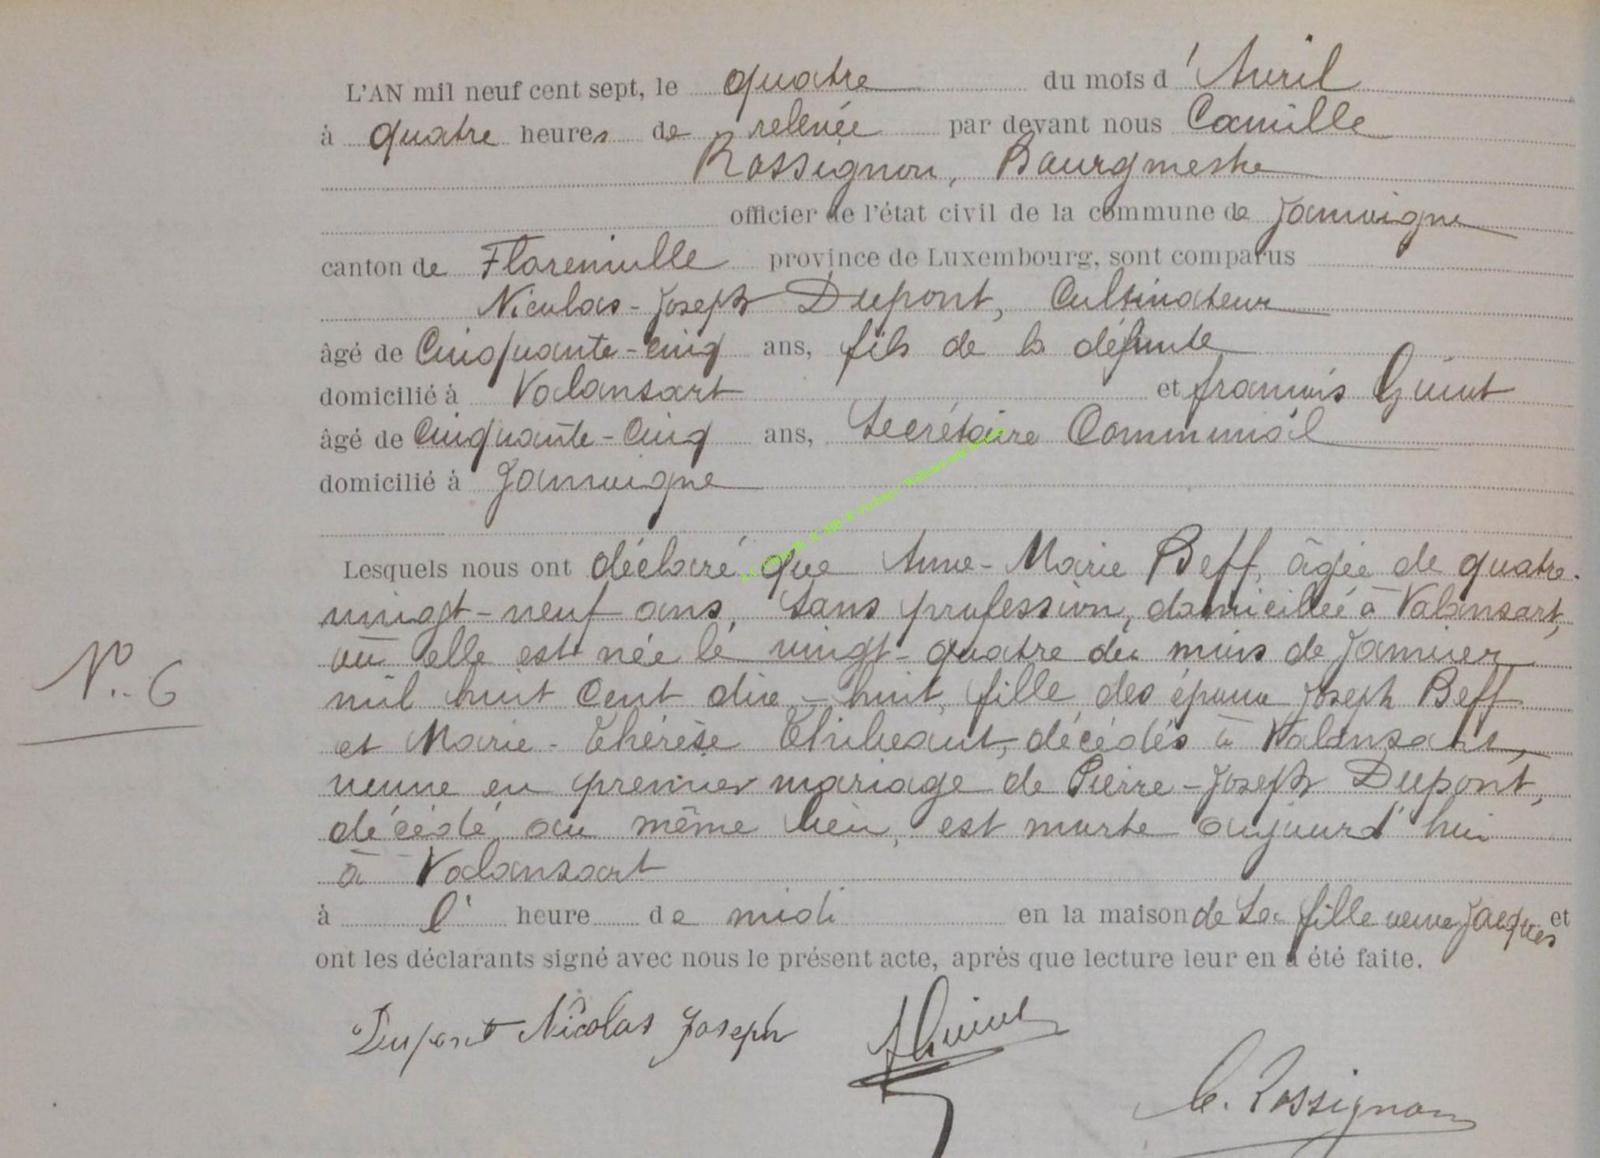 L'AN mil neuf cent sept, le quatre du mois d'Avril
à quatre heures de relevée par devant nous Camille
Rossignon, Bourgmestre
officier de l'état civil de la commune de Jamoigne
canton de Florenville province de Luxembourg, sont comparus
Nicolas-Joseph Dupont, Cultivateur
âgé de Cinquante-cinq ans, fils de la défunte
domicilié à Valansart et françois Guiot
âgé de Cinquante-Cinq ans, Secrétaire Communal
domicilié à Jamoigne
Lesquels nous ont déclaré que Anne-Marie Beff, âgée de quatre-
vingt-neuf ans, sans profession, domiciliée à Valansart,
où elle est née le vingt-quatre du mois de Janvier
mil huit Cent dix-huit, fille des époux Joseph Beff
N°. 6
et Marie-Thérèse Thibeaut, décédés à Valansart,
veuve en premier mariage de Pierre-Joseph Dupont,
décédé au même lieu, est morte aujourd'hui
à Valansart
à l' heure de midi en la maison de sa fille veuve Jacques et
ont les déclarants signé avec nous le présent acte, après que lecture leur en a été faite.
Dupont Nicolas Joseph
C. Rossignon